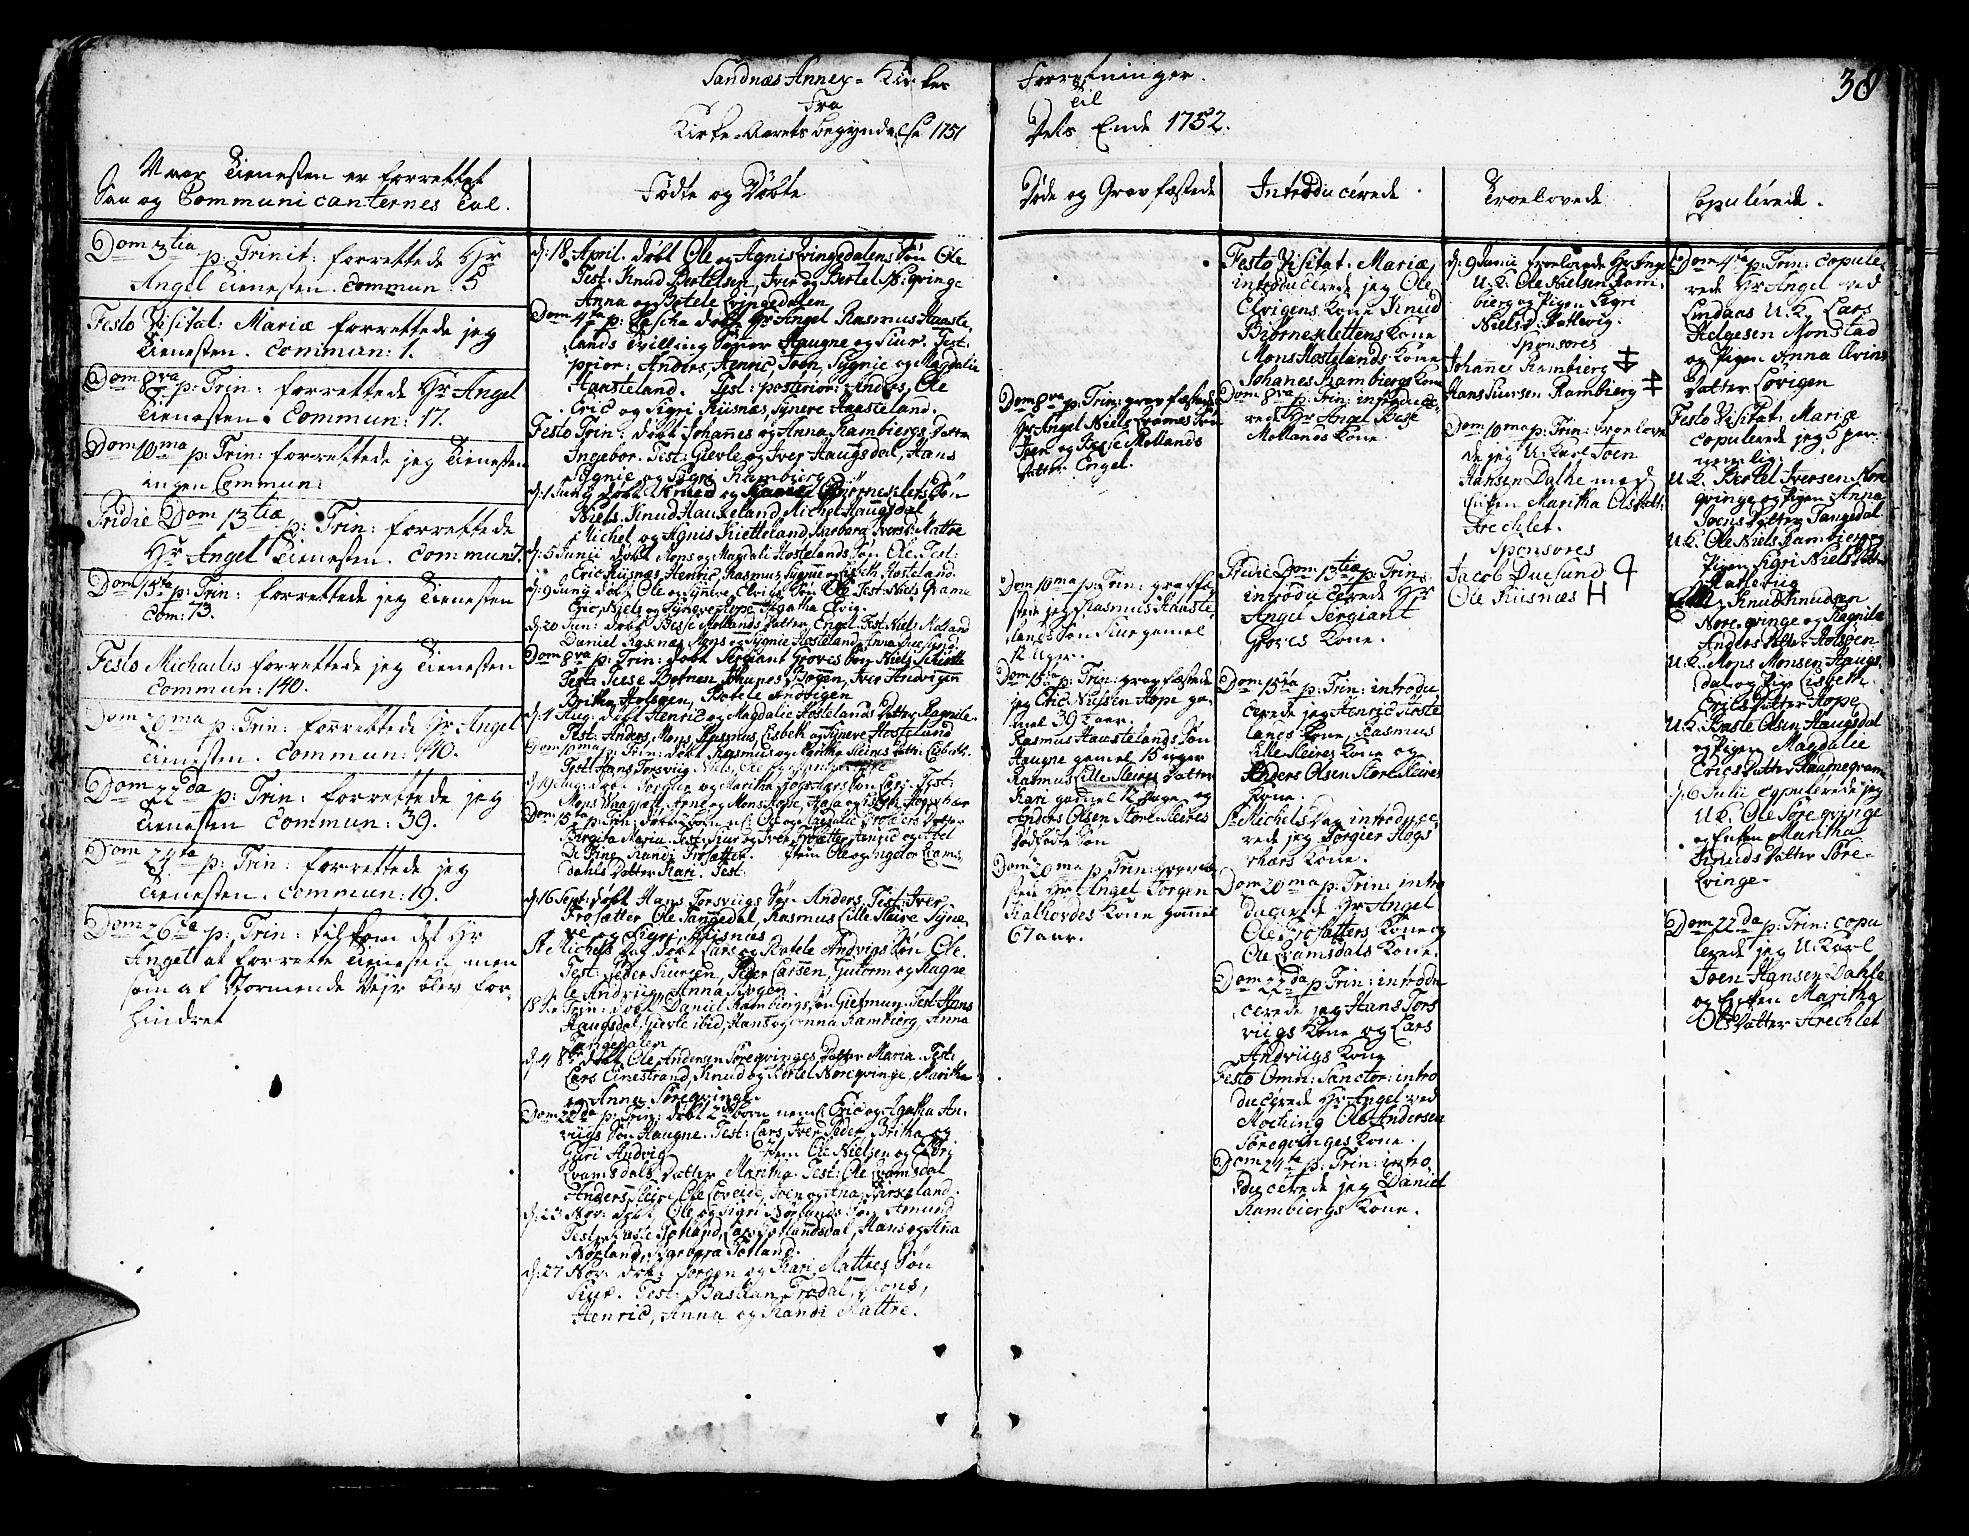 Sandnæs Annex-Kirkes
Forretninger.
38
Fra
til
Kirke-Aarets begyndelse 1751
Dets Ende 1752.
Naar Tienesten er forrettet
Saa og Communicanternes Tal.
Dom 3tia p: Trinit: forrettede Hr
Angel Tienesten. Commun: 5
Festo Visitat: Mariæ forrettede jeg
Tienesten. Commun: 1.
Dom 8va p: Trin: forrettede Hr Angel
Tienesten. Commun: 17.
Dom 10ma p: Trin: forrettede jeg Tienesten
ingen Commun:
Pridie Dom 13tiæ p: Trin: forrettede
Hr Angel Tienesten. Commun:
Dom 15ta p: Trin: forrettede jeg Tienesten
Com: 73.
Festo Michaelis forrettede jeg Tienesten
Commun: 140.
Dom 20ma p: Trin: forrettede Hr Angel
Tienesten. Commun: 40.
Dom 22da p: Trin: forrettede jeg
Tienesten Commun: 39.
Dom 24ta p: Trin: forrettede jeg
Tienesten. Commun: 19.
Dom 26ta p: Trin: tilkom det Hr
Angel at forrette Tienesten men
som af Stormende Vejr blev for-
hindret
Fødte og Døbte
d: 18 April. døbt Ole og Agnis Qvingedalens Søn Ole
Test: Knud Bertelsen, Iver og Bertel N: Qvinge
Anna og Botele Qvingedalen
Dom 4ta p: Pascha døbt Hr Angel Rasmus Haaste-
lands Tvilling Sønner Haugne og Siur. Test:
prior: Anders, Henric, Joen, Sygnie og Magdalie
Haasteland. Test: posterior: Anders, Ole
Eric og Sigri Riisnæs, Synere Haasteland.
Festo Trin: døbt Johanes og Anna Rambiergs Datter
Ingebor. Test: Gievle og Iver Haugsdal, Hans
Sygnie og Sigri Rambierg
d: 1 Junij døbt Knud og Biørneslets Søn
Niels. Knud Haukeland, Michel Haugsdal,
Michel og Agnis Kietteland, Ingeborg Iversd: Mattre
d: 5 Junii døbt Mons og Magdali Hostelands Søn Ole. Test:
Eric Riisnæs, Henric, Rasmus, Sygnie og Lisbeth Hosteland.
d: 9 Junij døbt Ole og Synere Elvigs Søn Ole. Test: Niels Grame
Eric, Niels og Synove Hope, Agatha Elvig.
d: 20 Jun: døbt Besse Mollands Datter Engel. Test: Niels Molland
Daniel Mons og Sygnie Hosteland, Anna Duesund
Dom 8va p: Trin: døbt Sergiant Groves børn Niels Schiøtte
Test: Johanes Bogen, Iver Andvigen
Britha Andvigen
d: 1 Aug: døbt Henric og Magdalie Hostelands Datter Ragnile
Test: Anders, Mons, Rasmus, Lisbeth og Synere Hosteland
Dom 10ma p: Trin: døbt Rasmus og Maritha Sleires Datter Lisbeth.
Test: Hans Torsviig
Test:
Birgita Maria. Test: Siur og Iver Frøsetter, Henric og
Randi Frøsetter. Item Ole og Ingebor Qvams-
dahls Datter Kari. Test:
d: 16 Sept: døbt Hans Torsviigs Søn Anders, Test: Iver
Frøsætter, Ole Tangedal, Rasmus Lille Sleire, Syne-
ve og Sigri Riisnæs
St Michels Dag døbt Lars og Botele Andvigs Søn Ole.
Test: Peder Siursen, Peder Larsen, Gutorm og Ragne
le Andviig, Anna Bogen
Trin: døbt Daniel Rambiergs Søn Test: Hans
Haugsdal, Gievle ibid, Hans og Anna Rambierg, Anna
Tangedalen
d: 4 8br døbt Ole Andersen Søreqvinges Datter Maria. Test:
Lars Einestrand, Knud og Bertel Nøreqvinge, Maritha
og Anna Søreqvinge
Dom 22da p: Trin: døbt 2de børn neml: Eric og Agatha An-
viigs Søn Haugne. Test: Lars, Iver, Peder, Britha og
Guri Andvig. Item Ole Nielsen og
Qvamsdals Datter Maritha. Test: Ole Qvamsdal
Anders Sleire, Ole Løveide, Joen og Ana
d: 23 Nov: døbt Ole og Sigri Nørlands Søn Amund
Test: Totland, Lars Totlandsdal, Hans og Ana
Nørland, Totland.
d: 27 Nov: døbt Jorgen og Kari Mattres Søn
Siur. Test: Bastian Trodal, Mons,
Henric, Anna og Randi Mattre.
Døde og Gravfæstede
Dom 8va p: Trin: gravfæstede
Hr Angel Niels Søn
Joen og Besse Mollands
Datter Engel.
Dom 10ma p: Trin: gravfæ-
stede jeg Rasmus Haaste
lands Søn Siur gamel
12 Uger.
Dom 15ta p: Trin: gravfæstede
jeg Eric Nielsen Hope ga-
mel 39 aar.
Rasmus Haastelands Søn
Haugne gamel 15 uger
Rasmus Lille Sleires Datter
Kari gammel 12 Dage, og
Anders Olsen Store Sleires
Dødfødte Søn
Dom 20ma p: Trin: gravfæ-
stede Hr Angel Jorgen
Kalhovdes Kone gammel
67 aar.
Introducérede
Festo Visitat. Mariæ,
introducerede jeg Ole
Elvigens Kone Knud
Biørneslettens Kone
Mons Hostelands Kone
Johanes Rambiergs Kone
Dom 8va p: Trin: introduce-
rede Hr Angel Besse
Mollands Kone
Pridie Dom 13tiæ p: Trin:
introducerede Hr
Angel Sergiant
Groves Kone.
Dom 15ta p: Trin: introdu
cerede jeg Henric Hoste
lands Kone, Rasmus
Lille Sleires Kone og
Anders Olsen Store Sleires
Kone.
St Michels Dag introduce
rede jeg Torgier Hogs
Kone.
Dom 20ma p: Trin: intro
ducerede Hr Angel
Ole Frøsætters Kone og
Ole Qvamsdals Kone.
Dom 22da p: Trin: introdu
cerede jeg Hans Tors
viigs Kone og Lars
Andviigs Kone
Festo Omn: Sanctor: intro
ducerede Hr Angel ved
Moching Ole Andersen
Søreqvinges Kone.
Dom 24ta p: Trin: intro,
ducerede jeg Daniel
Rambiergs Kone.
Troelovede
d: 9 Junii troelovede Hr Angel
U: K: Ole Nielsen Ram-
bierg og Pigen Sigri
Nielsd: Hatlevig.
Sponsores
Johanes Rambierg
Hans Siursen Rambierg
Dom 10ma p: Trin: troelove
de jeg U: Karl Joen
Hansen Dahle med
Enken Maritha Olsdatt:
Arechlet.
Sponsores
Jacob Duesund
Ole Riisnæs H
Copulérede.
Dom 4ta p: Trin: copule
rede Hr Angel ved
Lindaas U: K. Lars
Helgesen Monstad
og Pigen Anna Arins
Datter Løvigen
Festo Visitat: Mariæ
copulerede jeg 5 par
nemlig:
U: K. Bertel Iversen Nøre
qvinge og Pigen Anna
Joens Datter Tangedal
U: K. Ole Niels: Rambierg og
Pigen Sigri Niels Datter
Hatleviig
Knud Knudsen
Nøreqvinge og Ragnile
Anders Datter
U: K. Mons Monsen Haugs-
dal og Pig: Lisbeth
Erics Datter Hope
U: K. Baste Olsen Haugsdal
og Pigen Magdalie
Erics Datter Haarnegram
d: 6 Julii copulerede jeg
U: K. Ole Søreqvinge
og Enken Maritha
Knuds Datter Søre-
Qvinge.
Dom 22da p: Trin: copu
lerede jeg U: Karl
Joen Hansen Dahle
og Enken Maritha
Ols Datter Arechlet